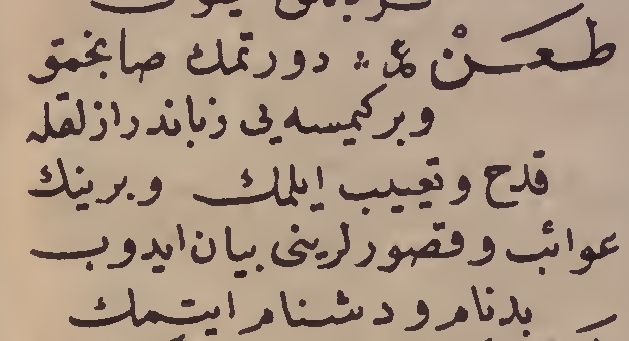 طعن ع : دورتمك صانجمق
وبركيمسه يى زباندرازلقله
قدح وتعييب ايلمك وبرينك
عوائب وقصورلرينى بيان ايدوب
بدنام ودشنام ايتمك